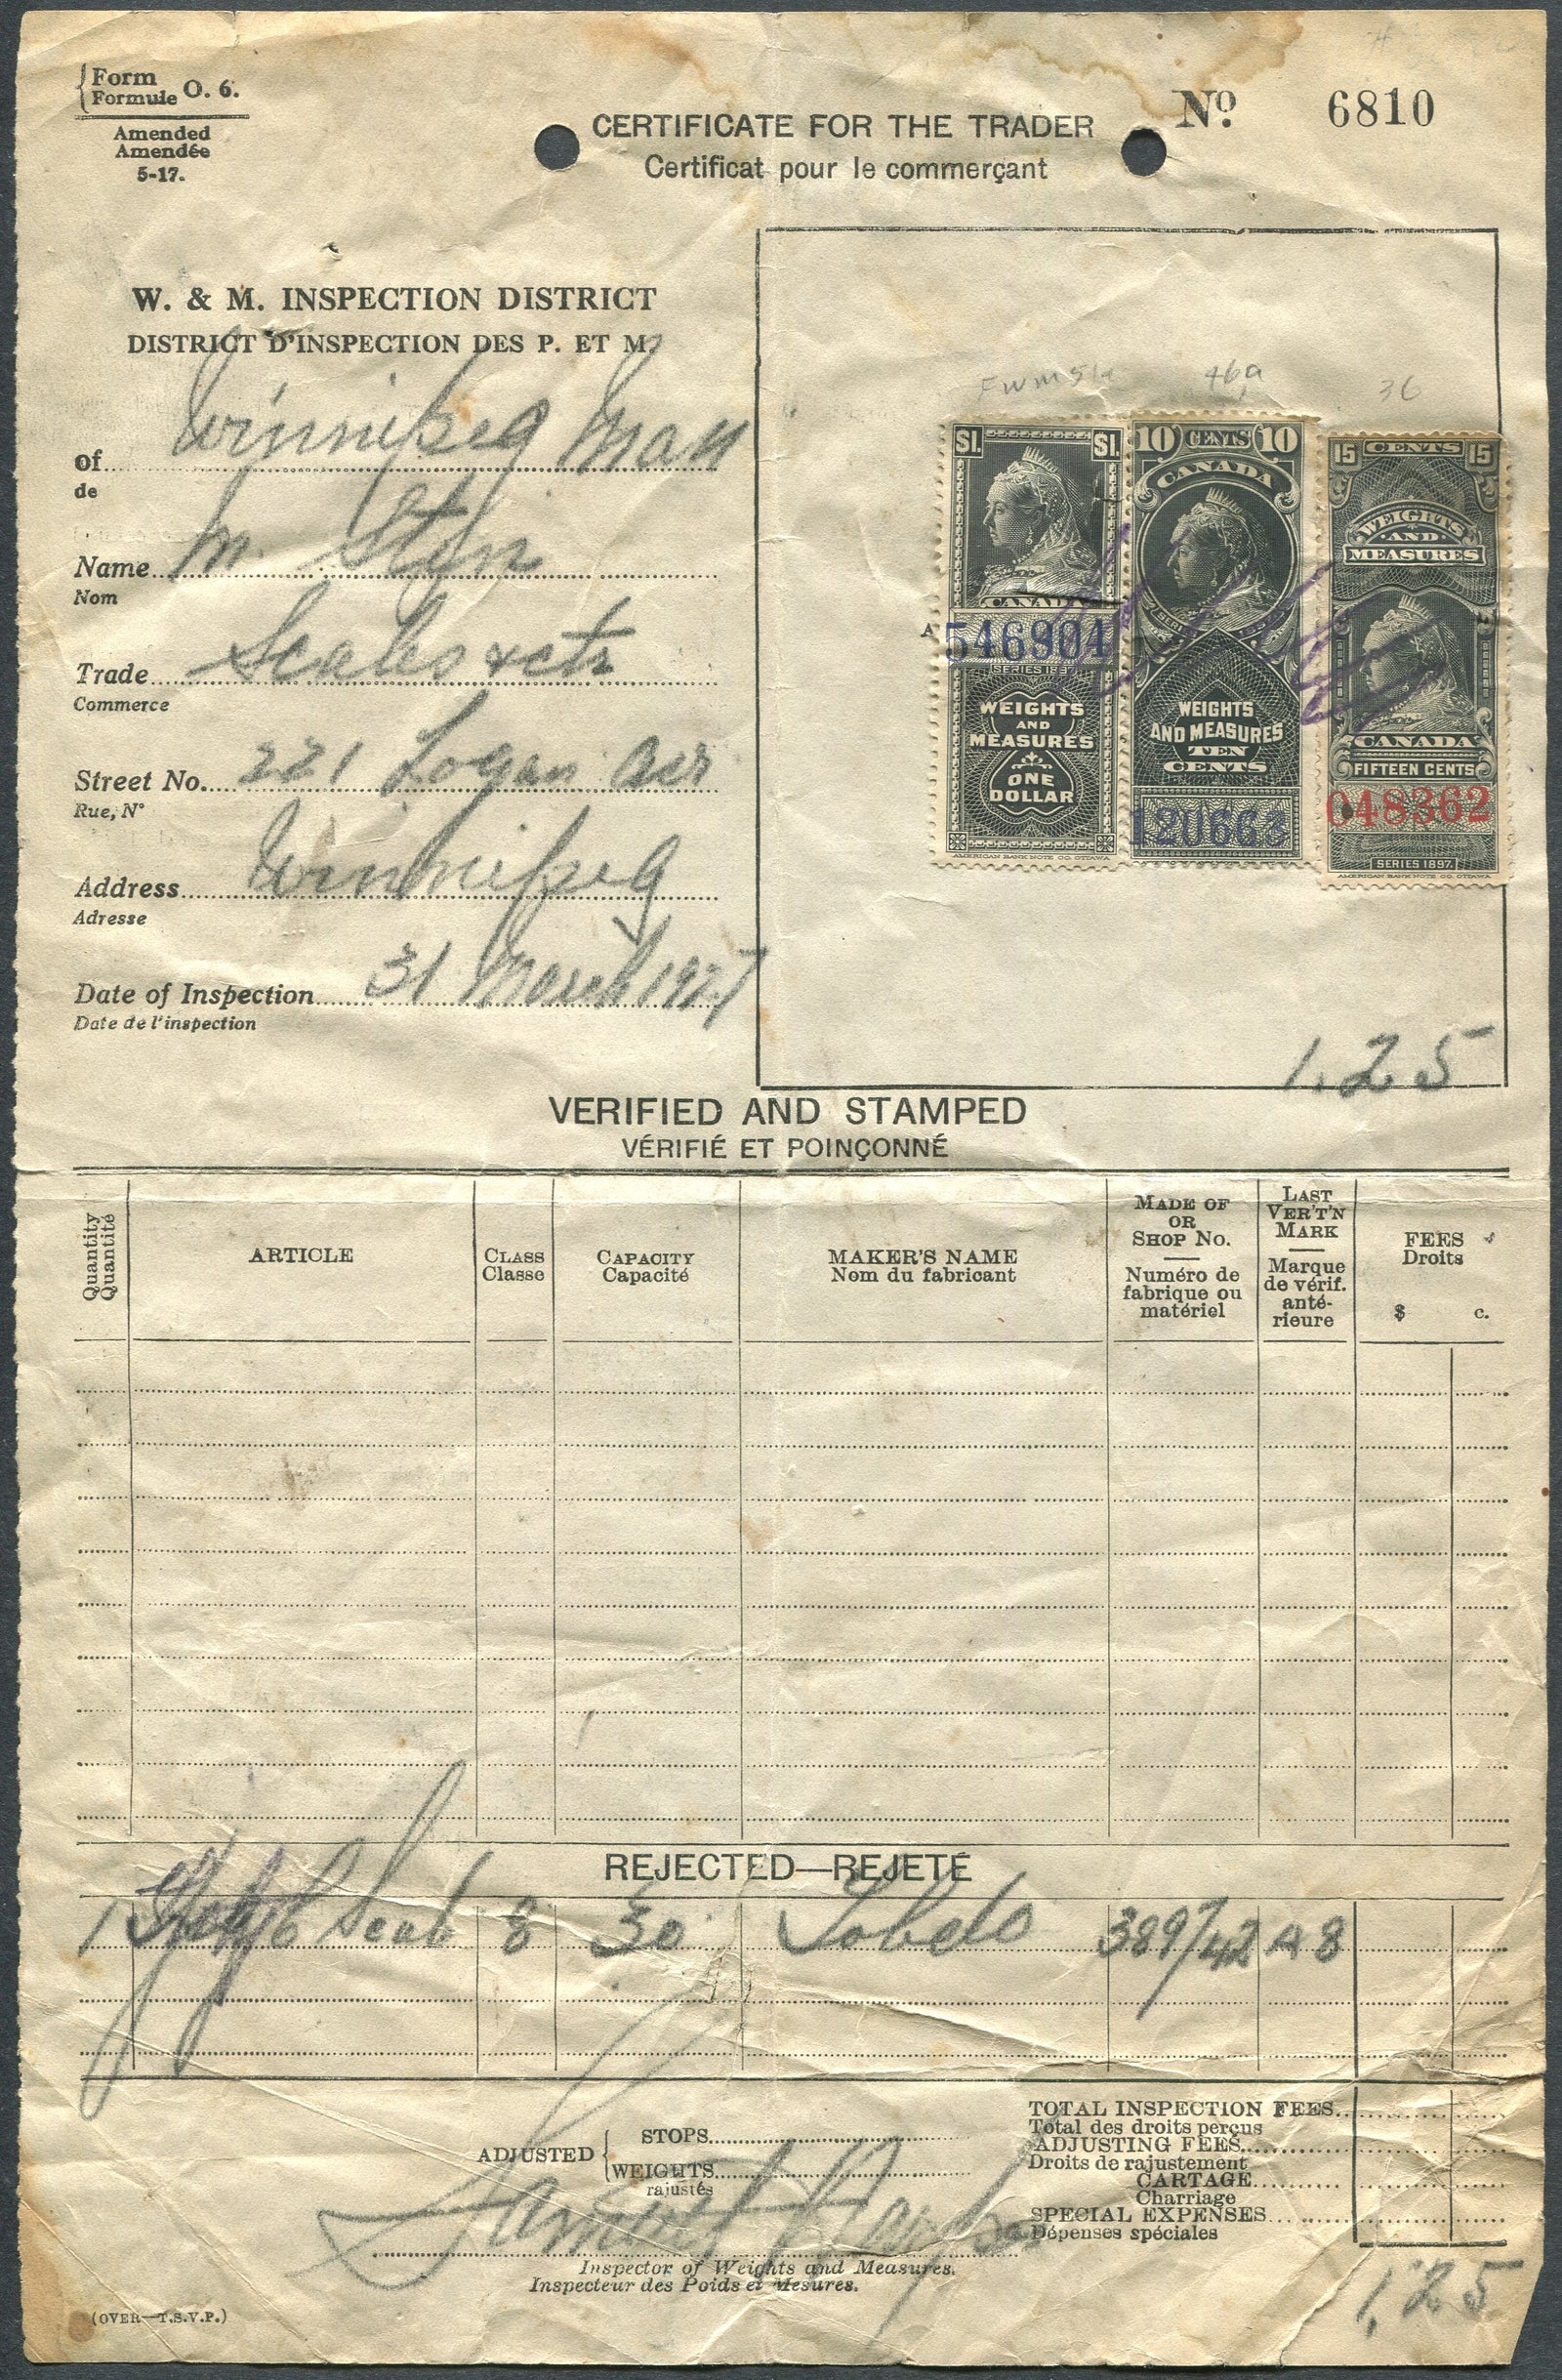 Form
Formule O. 6.
Amended
Amendée
5-17.
CERTIFICATE FOR THE TRADER
Certificat pour le commerçant
No. 6810
W. & M. INSPECTION DISTRICT
DISTRICT D'INSPECTION DES P. ET M.
of Winnipeg Man
de
Name M.
Nom
Trade Scales
Commerce
Street No. 221 Logan Ave
Rue, No
Address Winnipeg
Adresse
Date of Inspection 31 March 1927
Date de l'inspection
FWM51a 46a 36
$1. $1.
CANADA
A 546904
SERIES 1897
WEIGHTS
AND
MEASURES
ONE
DOLLAR
AMERICAN BANK NOTE CO. OTTAWA
10 CENTS 10
CANADA
WEIGHTS
AND MEASURES
TEN
CENTS
120663
15 CENTS 15
WEIGHTS
AND
MEASURES
CANADA
FIFTEEN CENTS
048362
SERIES 1897.
AMERICAN BANK NOTE CO. OTTAWA
1.25
VERIFIED AND STAMPED
VÉRIFIÉ ET POINÇONNÉ
Quantity
Quantité
ARTICLE
CLASS
Classe
CAPACITY
Capacité
MAKER'S NAME
Nom du fabricant
MADE OF
OR
SHOP No.
Numéro de
fabrique ou
matériel
LAST
VER'T'N
MARK
Marque
de vérif.
anté-
rieure
FEES
Droits
$ c.
REJECTED—REJETÉ
1 8 30 Toledo 389742 A 8
ADJUSTED
STOPS
WEIGHTS
rajustés
TOTAL INSPECTION FEES
Total des droits perçus
ADJUSTING FEES
Droits de rajustement
CARTAGE
Charriage
SPECIAL EXPENSES
Dépenses spéciales
Inspector of Weights and Measures.
Inspecteur des Poids et Mesures.
(OVER—T.S.V.P.)
1.25